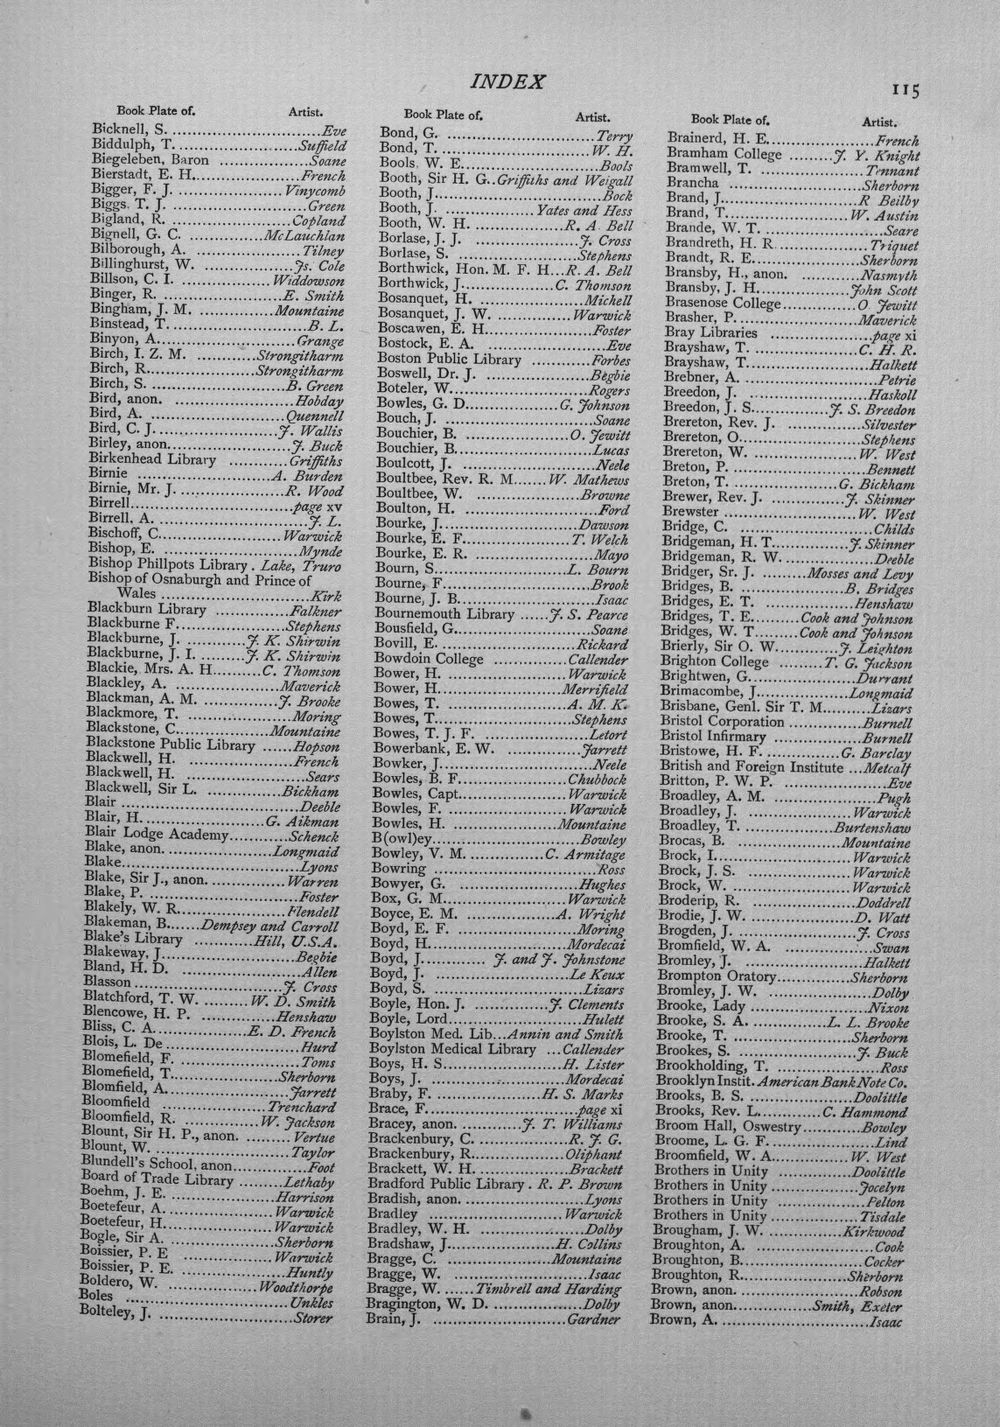 INDEX
115
Book Plate of. Artist.
Bicknell, S. ..............Eve
Biddulph, T. ..............Suffield
Biegeleben, Baron ..............Soane
Bierstadt, E. H. ..............French
Bigger, F. J. ..............Vinycomb
Biggs, T. J. ..............Green
Bigland, R. ..............Copland
Bignell, G. C. ..............McLauchlan
Bilborough, A. ..............Tilney
Billinghurst, W. ..............Js. Cole
Billson, C. I. ..............Widdowson
Binger, R. ..............E. Smith
Bingham, J. M. ..............Mountaine
Binstead, T. ..............B. L.
Binyon, A. ..............Grange
Birch, I. Z. M. ..............Strongitharm
Birch, R. ..............Strongitharm
Birch, S. ..............B. Green
Bird, anon. ..............Hobday
Bird, A. ..............Quennell
Bird, C. J. ..............J. Wallis
Birley, anon. ..............J. Buck
Birkenhead Library ..............Griffiths
Birnie ..............A. Burden
Birnie, Mr. J. ..............R. Wood
Birrell ..............page xv
Birrell. A. ..............J. L.
Bischoff, C. ..............Warwick
Bishop, E. ..............Mynde
Bishop Phillpots Library . Lake, Truro
Bishop of Osnaburgh and Prince of
Wales ..............Kirk
Blackburn Library ..............Falkner
Blackburne F. ..............Stephens
Blackburne, J. ..............J. K. Shirwin
Blackburne, J. I. ..............J. K. Shirwin
Blackie, Mrs. A. H. ..............C. Thomson
Blackley, A. ..............Maverick
Blackman, A. M. ..............J. Brooke
Blackmore, T. ..............Moring
Blackstone, C. ..............Mountaine
Blackstone Public Library ......Hopson
Blackwell, H. ..............French
Blackwell, H. ..............Sears
Blackwell, Sir L. ..............Bickham
Blair ..............Deeble
Blair, H. ..............G. Aikman
Blair Lodge Academy ..............Schenck
Blake, anon. ..............Longmaid
Blake ..............Lyons
Blake, Sir J., anon. ..............Warren
Blake, P. ..............Foster
Blakely, W. R. ..............Flendell
Blakeman, B. ......Dempsey and Carroll
Blake's Library ..............Hill, U.S.A.
Blakeway, J. ..............Begbie
Bland, H. D. ..............Allen
Blasson ..............J. Cross
Blatchford, T. W. ..............W. D. Smith
Blencowe, H. P. ..............Henshaw
Bliss, C. A. ..............E. D. French
Blois, L. De ..............Hurd
Blomefield, F. ..............Toms
Blomefield, T. ..............Sherborn
Blomfield, A. ..............Jarrett
Bloomfield ..............Trenchard
Bloomfield, R. ..............W. Jackson
Blount, Sir H. P., anon. ..............Vertue
Blount, W. ..............Taylor
Blundell's School, anon. ..............Foot
Board of Trade Library ..............Lethaby
Boehm, J. E. ..............Harrison
Boetefeur, A. ..............Warwick
Boetefeur, H. ..............Warwick
Bogle, Sir A. ..............Sherborn
Boissier, P. E ..............Warwick
Boissier, P. E. ..............Huntly
Boldero, W. ..............Woodthorpe
Boles ..............Unkles
Bolteley, J. ..............Storer
Book Plate of. Artist.
Bond, G. ..............Terry
Bond, T. ..............W. H.
Bools. W. E. ..............Bools
Booth, Sir H. G...Griffiths and Weigall
Booth, J. ..............Bock
Booth, J. ..............Yates and Hess
Booth, W. H. ..............R. A Bell
Borlase, J. J. ..............J. Cross
Borlase, S. ..............Stephens
Borthwick, Hon. M. F. H...R. A. Bell
Borthwick, J. ..............C. Thomson
Bosanquet, H. ..............Michell
Bosanquet, J. W. ..............Warwick
Boscawen, E. H. ..............Foster
Bostock, E. A. ..............Eve
Boston Public Library ..............Forbes
Boswell, Dr. J. ..............Begbie
Boteler, W. ..............Rogers
Bowles, G. D. ..............G. Johnson
Bouch, J. ..............Soane
Bouchier, B. ..............O. Jewitt
Bouchier, B. ..............Lucas
Boulcott, J. ..............Neele
Boultbee, Rev. R. M. ......W. Mathews
Boultbee, W. ..............Browne
Boulton, H. ..............Ford
Bourke, J. ..............Dawson
Bourke, E. F. ..............T. Welch
Bourke, E. R. ..............Mayo
Bourn, S. ..............L. Bourn
Bourne, F. ..............Brook
Bourne, J. B. ..............Isaac
Bournemouth Library ......J. S. Pearce
Bousfield, G. ..............Soane
Bovill, E. ..............Rickard
Bowdoin College ..............Callender
Bower, H. ..............Warwick
Bower, H. ..............Merrifield
Bowes, T. ..............A. M. K.
Bowes, T. ..............Stephens
Bowes, T. J. F. ..............Letort
Bowerbank, E. W. ..............Jarrett
Bowker, J. ..............Neele
Bowles, B. F. ..............Chubbock
Bowles, Capt. ..............Warwick
Bowles, F. ..............Warwick
Bowles, H. ..............Mountaine
B(owl)ey ..............Bowley
Bowley, V. M. ..............C. Armitage
Bowring ..............Ross
Bowyer, G. ..............Hughes
Box, G. M. ..............Warwick
Boyce, E. M. ..............A. Wright
Boyd, E. F. ..............Moring
Boyd, H. ..............Mordecai
Boyd, J. ............ J. and J. Johnstone
Boyd, J. ..............Le Keux
Boyd, S. ..............Lizars
Boyle, Hon. J. ..............J. Clements
Boyle, Lord ..............Hulett
Boylston Med. Lib...Annin and Smith
Boylston Medical Library ...Callender
Boys, H. S. ..............H. Lister
Boys, J. ..............Mordecai
Braby, F. ..............H. S. Marks
Brace, F. ..............page xi
Bracey, anon. ..............J. T. Williams
Brackenbury, C. ..............R. J. G.
Brackenbury, R. ..............Oliphant
Brackett, W. H. ..............Brackett
Bradford Public Library . R. P. Brown
Bradish, anon. ..............Lyons
Bradley ..............Warwick
Bradley, W. H. ..............Dolby
Bradshaw, J. ..............H. Collins
Bragge, C. ..............Mountaine
Bragge, W. ..............Isaac
Bragge, W. ......Timbrell and Harding
Bragington, W. D. ..............Dolby
Brain, J. ..............Gardner
Book Plate of. Artist.
Brainerd, H. E. ..............French
Bramham College .........J. Y. Knight
Bramwell, T. ..............Tennant
Brancha ..............Sherborn
Brand, J. ..............R Beilby
Brand, T. ..............W. Austin
Brande, W. T. ..............Seare
Brandreth, H. R ..............Triquet
Brandt, R. E. ..............Sherborn
Bransby, H., anon. ..............Nasmyth
Bransby, J. H. ..............John Scott
Brasenose College ..............O Jewitt
Brasher, P. ..............Maverick
Bray Libraries ..............page xi
Brayshaw, T. ..............C. H. R.
Brayshaw, T. ..............Halkett
Brebner, A. ..............Petrie
Breedon, J. ..............Haskoll
Breedon, J. S. ..............J. S. Breedon
Brereton, Rev. J. ..............Silvester
Brereton, O. ..............Stephens
Brereton, W. ..............W. West
Breton, P. ..............Bennett
Breton, T. ..............G. Bickham
Brewer, Rev. J. ..............J. Skinner
Brewster ..............W. West
Bridge, C. ..............Childs
Bridgeman, H. T. ..............J. Skinner
Bridgeman, R. W. ..............Deeble
Bridger, Sr. J. .........Mosses and Levy
Bridges, B. ..............B. Bridges
Bridges, E. T. ..............Henshaw
Bridges, T. E. .........Cook and Johnson
Bridges, W. T. .........Cook and Johnson
Brierly, Sir O. W. ..............J. Leighton
Brighton College .........T. G. Jackson
Brightwen, G. ..............Durrant
Brimacombe, J. ..............Longmaid
Brisbane, Genl. Sir T. M. .........Lizars
Bristol Corporation ..............Burnell
Bristol Infirmary ..............Burnell
Bristowe, H. F. ..............G. Barclay
British and Foreign Institute ...Metcalf
Britton, P. W. P. ..............Eve
Broadley, A. M. ..............Pugh
Broadley, J. ..............Warwick
Broadley, T. ..............Burtenshaw
Brocas, B. ..............Mountaine
Brock, I. ..............Warwick
Brock, J. S. ..............Warwick
Brock, W. ..............Warwick
Broderip, R. ..............Doddrell
Brodie, J. W. ..............D. Watt
Brogden, J. ..............J. Cross
Bromfield, W. A. ..............Swan
Bromley, J. ..............Halkett
Brompton Oratory ..............Sherborn
Bromley, J. W. ..............Dolby
Brooke, Lady ..............Nixon
Brooke, S. A. ..............L. L. Brooke
Brooke, T. ..............Sherborn
Brookes, S. ..............J. Buck
Brookholding, T. ..............Ross
Brooklyn Instit. American Bank Note Co.
Brooks, B. S. ..............Doolittle
Brooks, Rev. L. ..............C. Hammond
Broom Hall, Oswestry ..............Bowley
Broome, L. G. F. ..............Lind
Broomfield, W. A. ..............W. West
Brothers in Unity ..............Doolittle
Brothers in Unity ..............Jocelyn
Brothers in Unity ..............Pelton
Brothers in Unity ..............Tisdale
Brougham, J. W. ..............Kirkwood
Broughton, A. ..............Cook
Broughton, B. ..............Cocker
Broughton, R. ..............Sherborn
Brown, anon. ..............Robson
Brown, anon. ..............Smith, Exeter
Brown, A. ..............Isaac